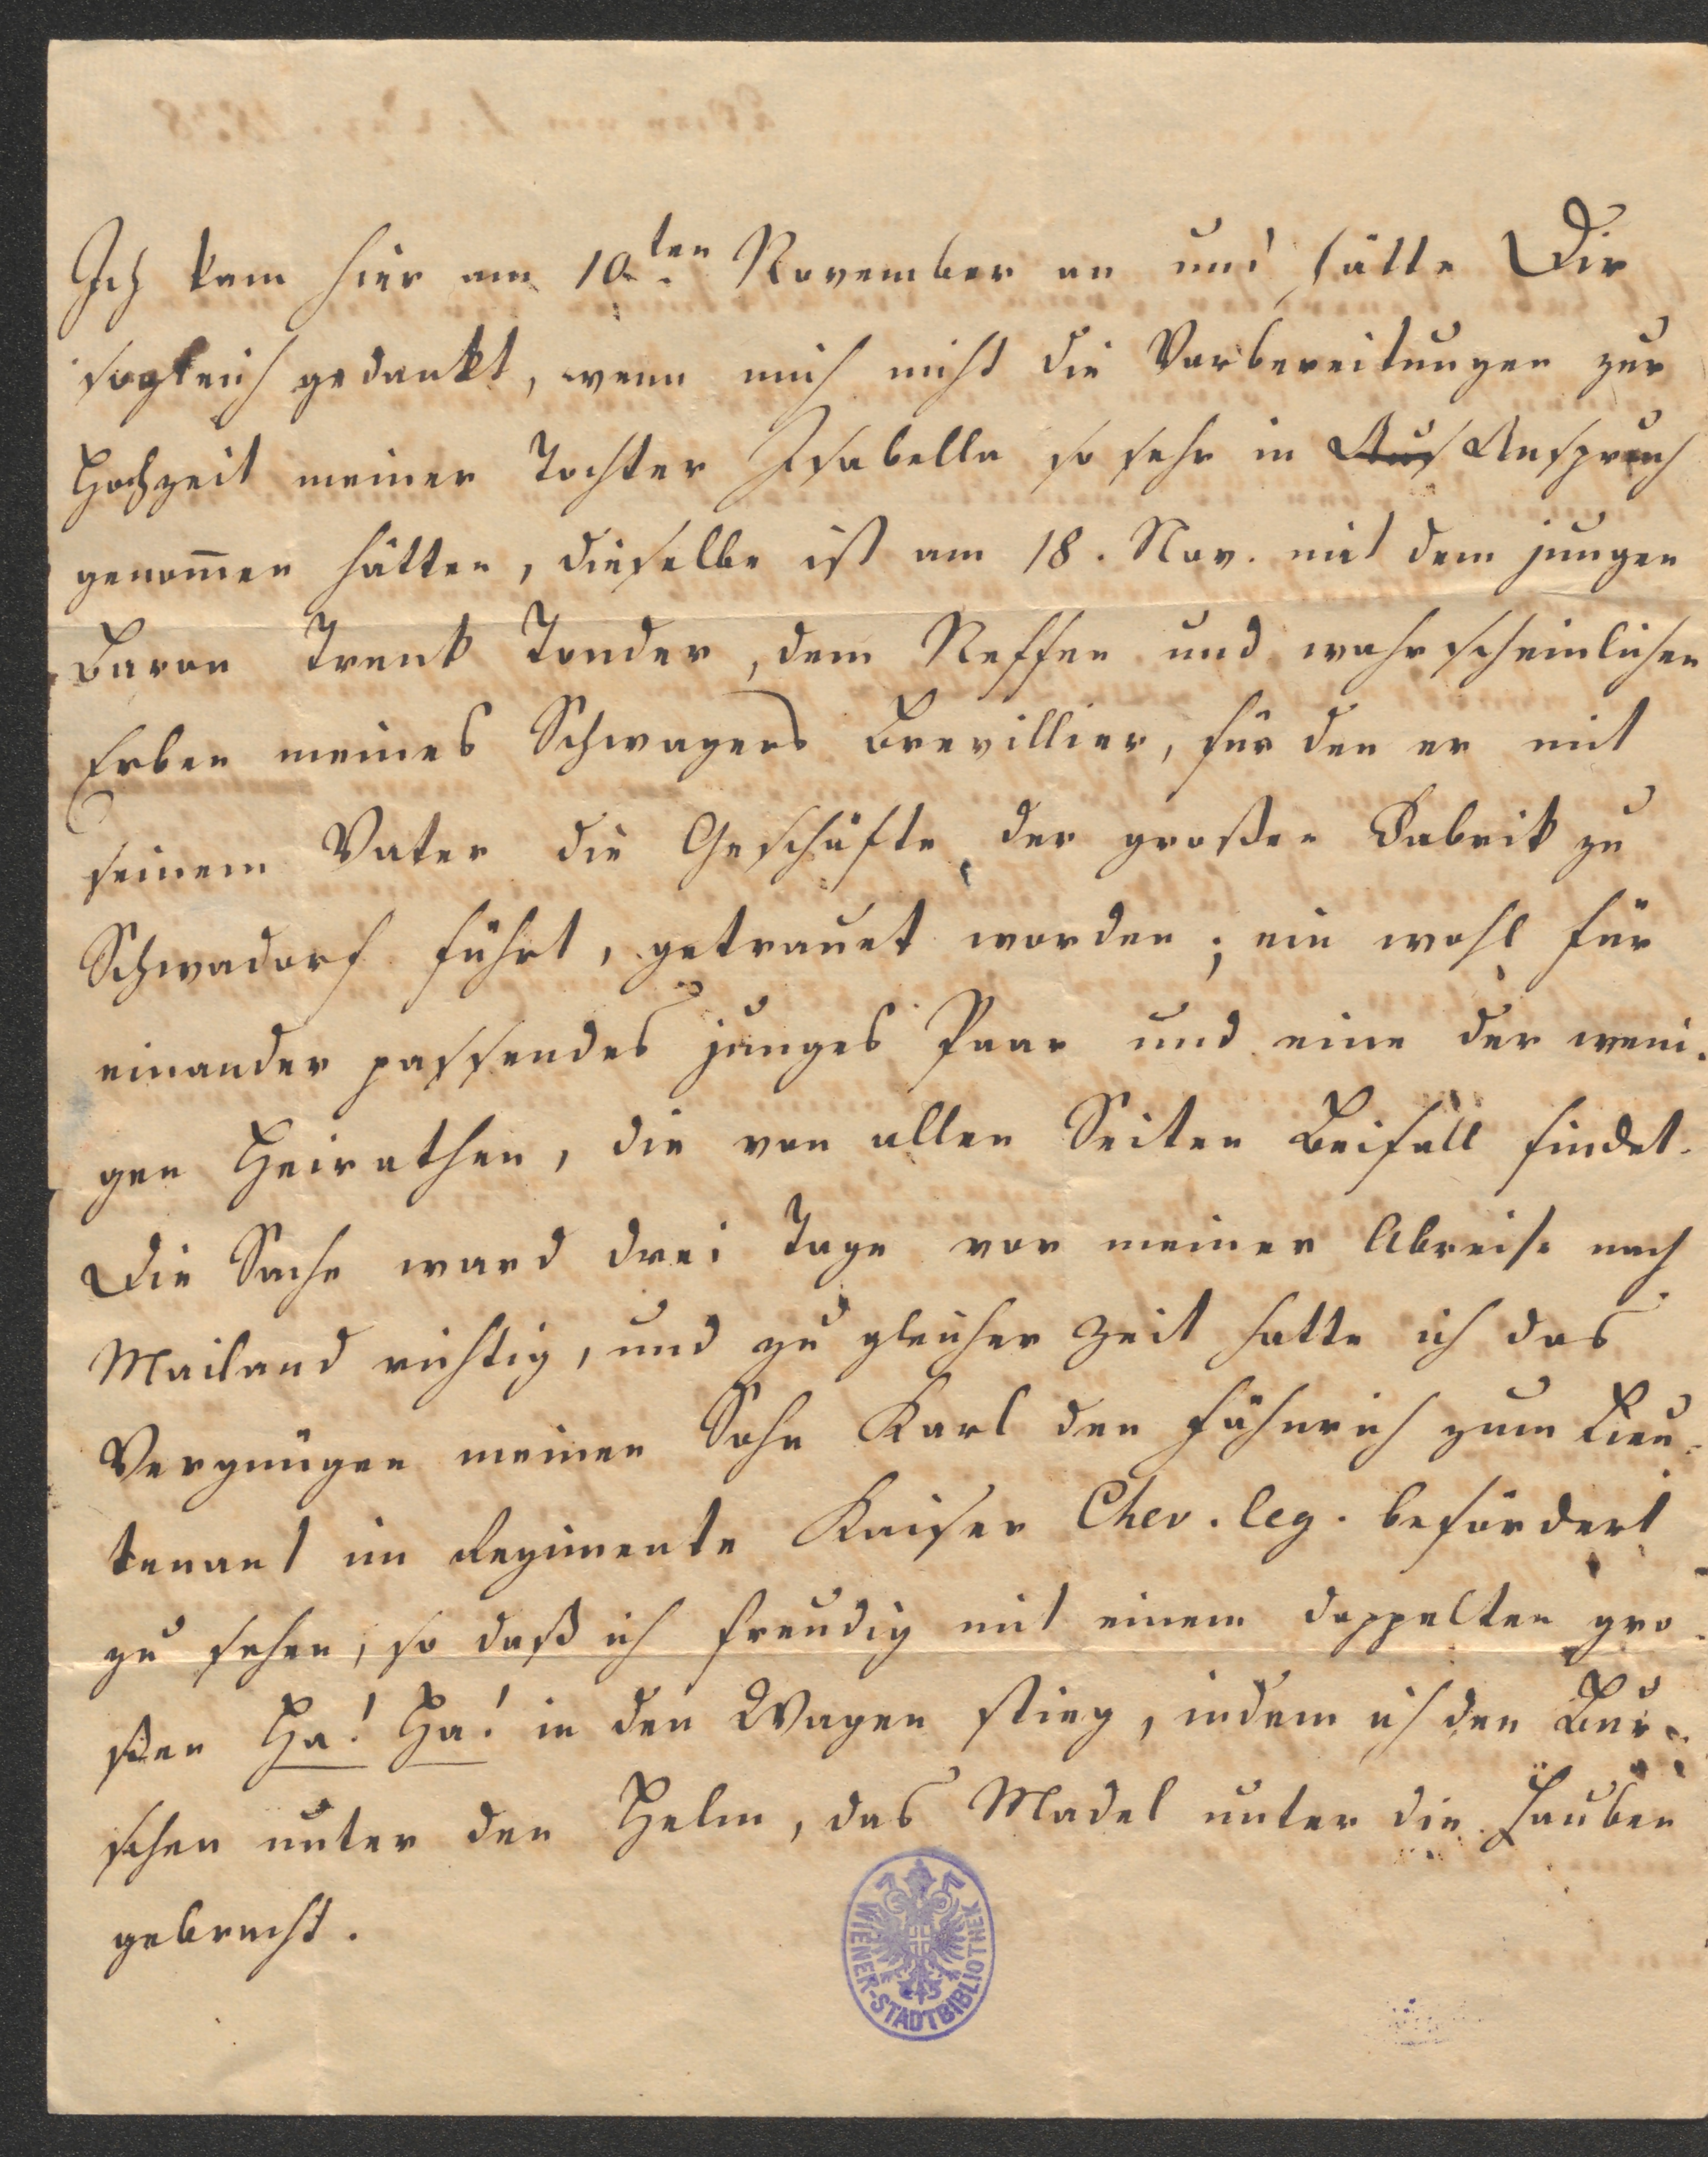 Ich kam hier am 10ten November an und hätte Dir
sogleich gedankt, wenn mich nicht die Vorbereitungen zur
Hochzeit meiner Tochter Isabella so sehr in Aus Anspruch
genom̅en hätten, dieselbe ist am 18. Nov. mit dem jungen
Baron Trenk Tonder, dem Neffen und wahrscheinlichen
Erben meines Schwagers Brevillier, für den er mit
seinem Vater die Geschäfte der großen Fabrik zu
Schwadorf führt, getrauet worden; ein wohl für
einander passendes junges Paar und eine der weni-
gen Heirathen, die von allen Seiten Beifall findet.
Die Sache ward drei Tage vor meiner Abreise nach
Mailand richtig, und zu gleicher Zeit hatte ich das
Vergnügen meinen Sohn Karl den Fähnrich zum Lieu-
tenant im Regimente Kaiser Chev. leg. befördert
zu sehen, so daß ich freudig mit einem doppelten gro-
ßen Ha! Ha! in den Wagen stieg, indem ich den Bur-
schen unter den Helm, das Madel unter die Hauben
gebracht.
WIENER-STADTBIBLIOTHEK